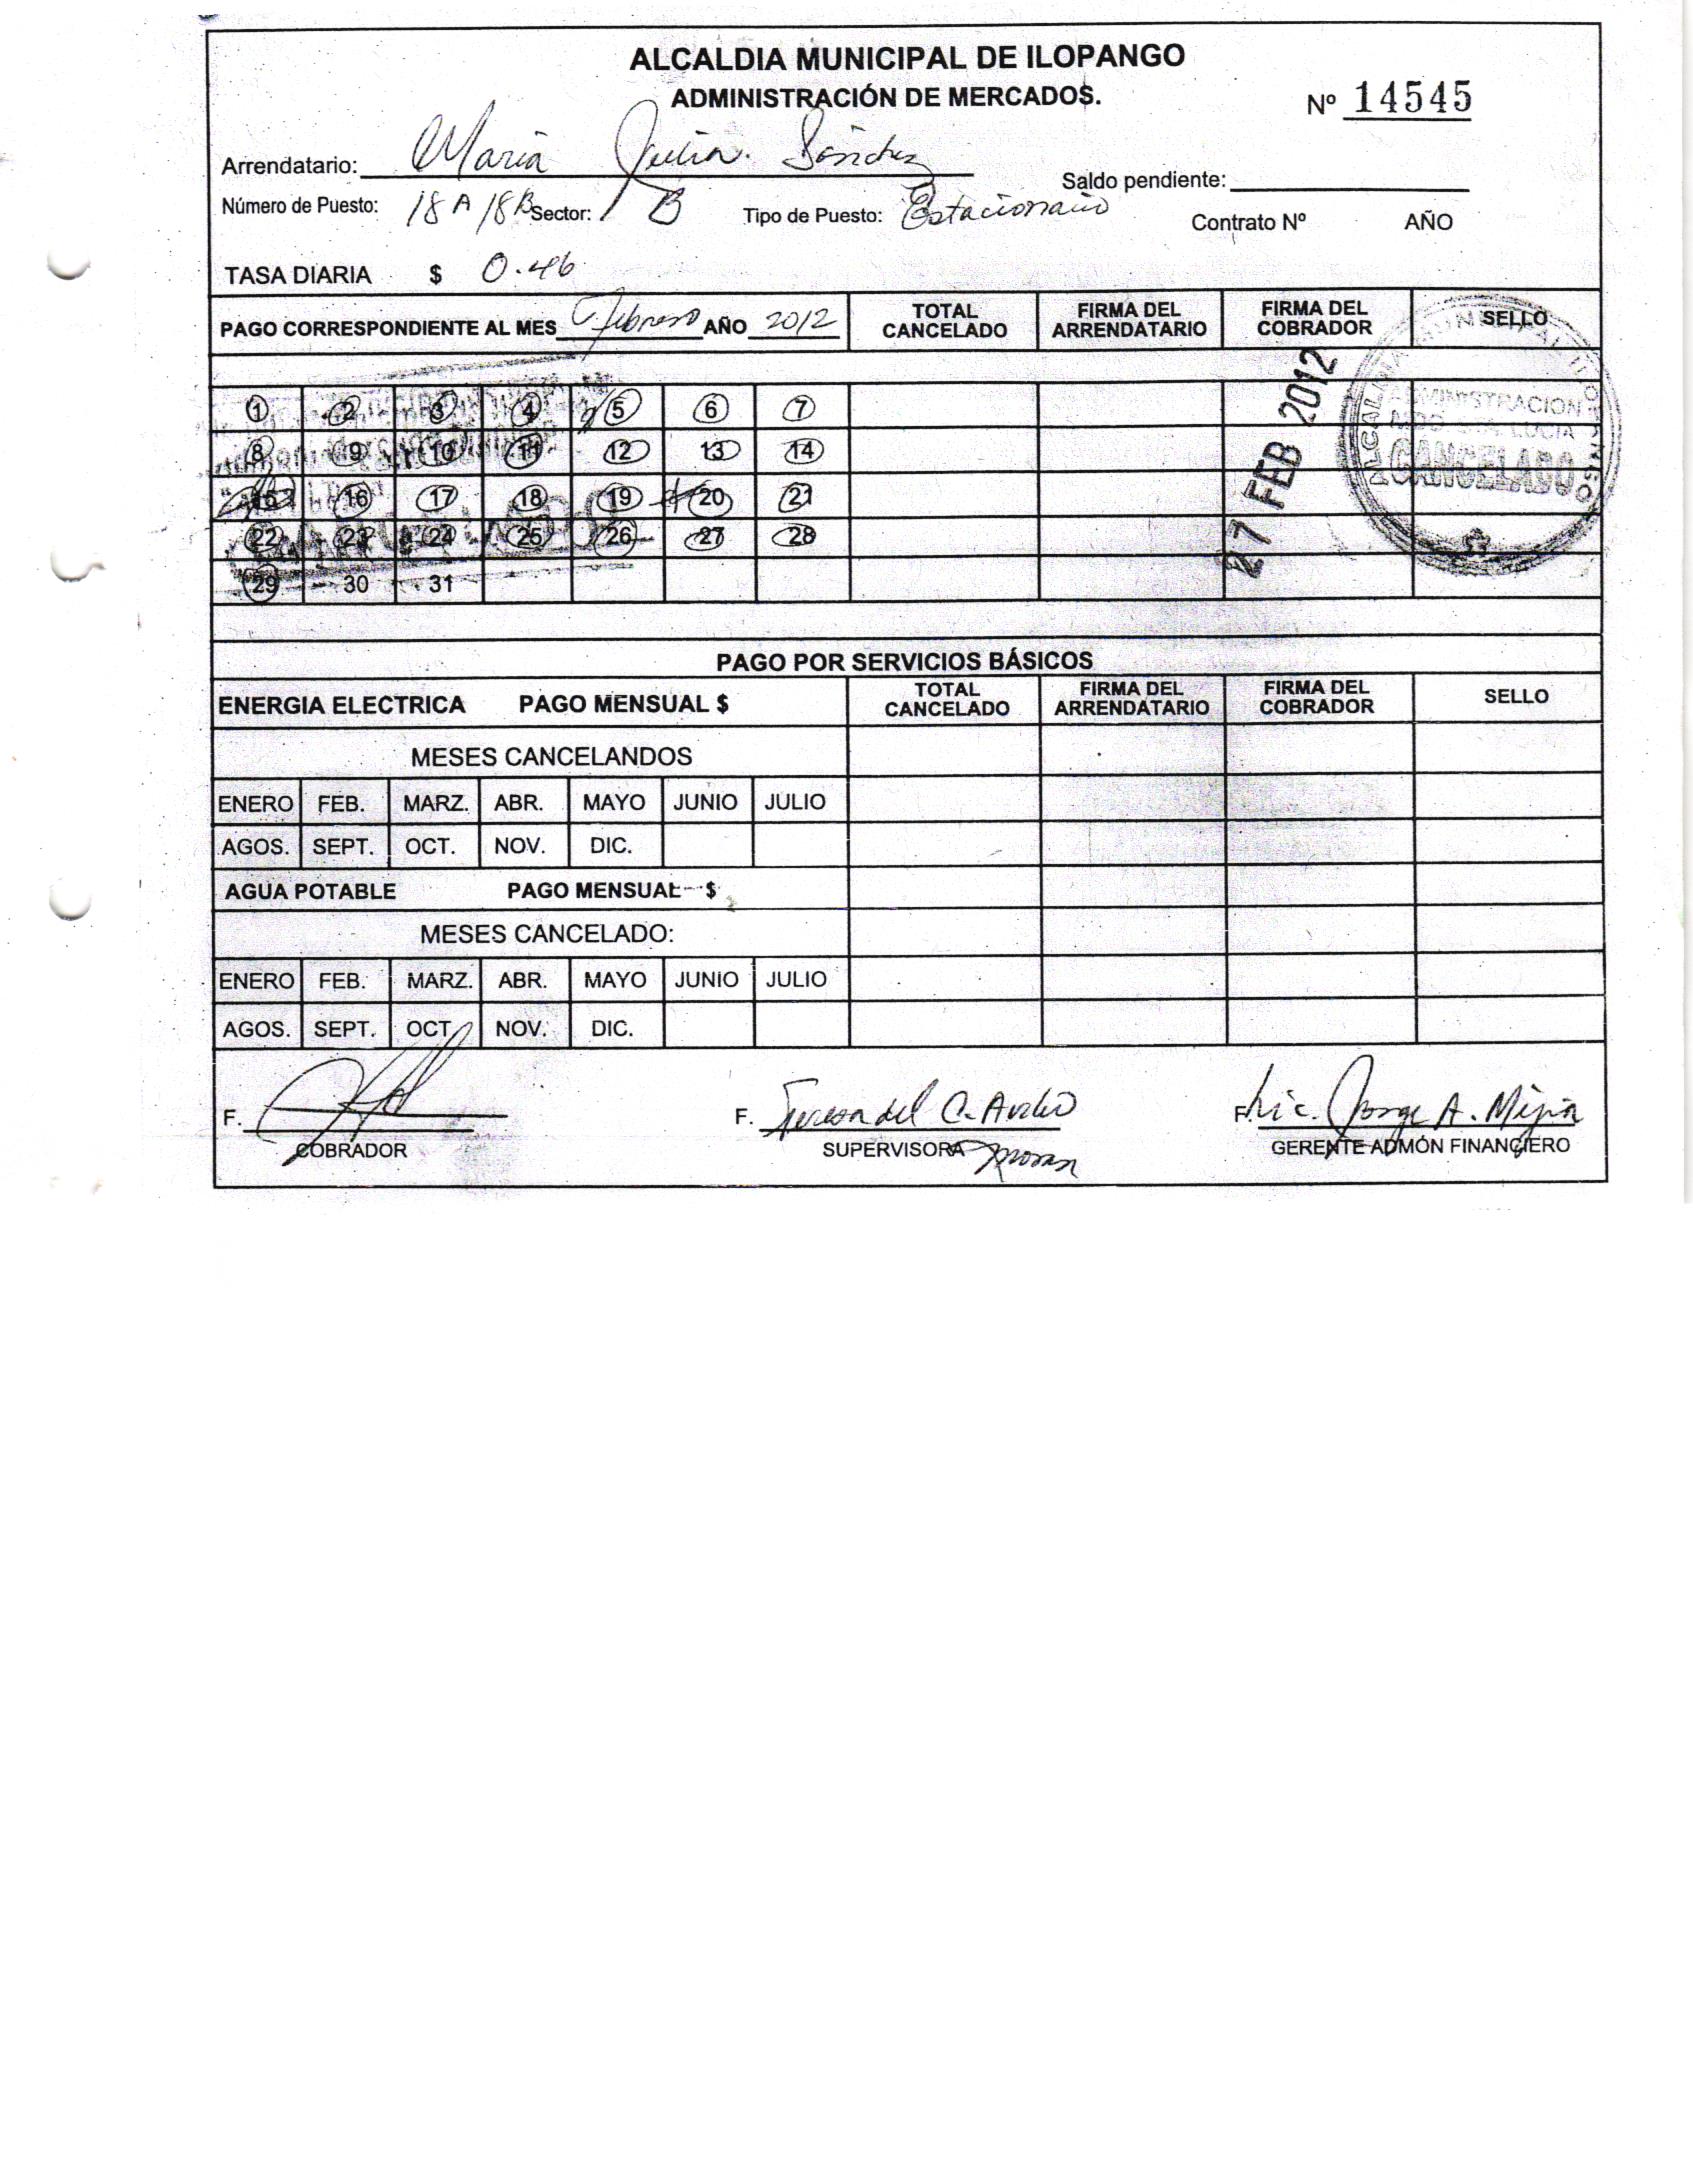 ALCALDIA MUNICIPAL DE ILOPANGO
ADMINISTRACIÓN DE MERCADOS.
Nº 14545
Arrendatario: Maria Julia Sánchez
Saldo pendiente:
Número de Puesto: 18 A 18B Sector: B Tipo de Puesto: Estacionario Contrato Nº AÑO
TASA DIARIA $ 0.46
PAGO CORRESPONDIENTE AL MES Febrero AÑO 2012 TOTAL CANCELADO FIRMA DEL ARRENDATARIO FIRMA DEL COBRADOR SELLO
1 2 3 4 5 6 7
8 9 10 11 12 13 14
15 16 17 18 19 20 21
22 23 24 25 26 27 28
29 30 31
27 FEB 2012
ADMINISTRACION
MDO STA. LUCIA
CANCELADO
PAGO POR SERVICIOS BÁSICOS
ENERGIA ELECTRICA PAGO MENSUAL $ TOTAL CANCELADO FIRMA DEL ARRENDATARIO FIRMA DEL COBRADOR SELLO
MESES CANCELANDOS
ENERO FEB. MARZ. ABR. MAYO JUNIO JULIO
AGOS. SEPT. OCT. NOV. DIC.
AGUA POTABLE PAGO MENSUAL $
MESES CANCELADO:
ENERO FEB. MARZ. ABR. MAYO JUNIO JULIO
AGOS. SEPT. OCT. NOV. DIC.
F. F. Teresa del C. F. Lic. Jorge A. Mejia
COBRADOR SUPERVISORA GERENTE ADMÓN FINANCIERO